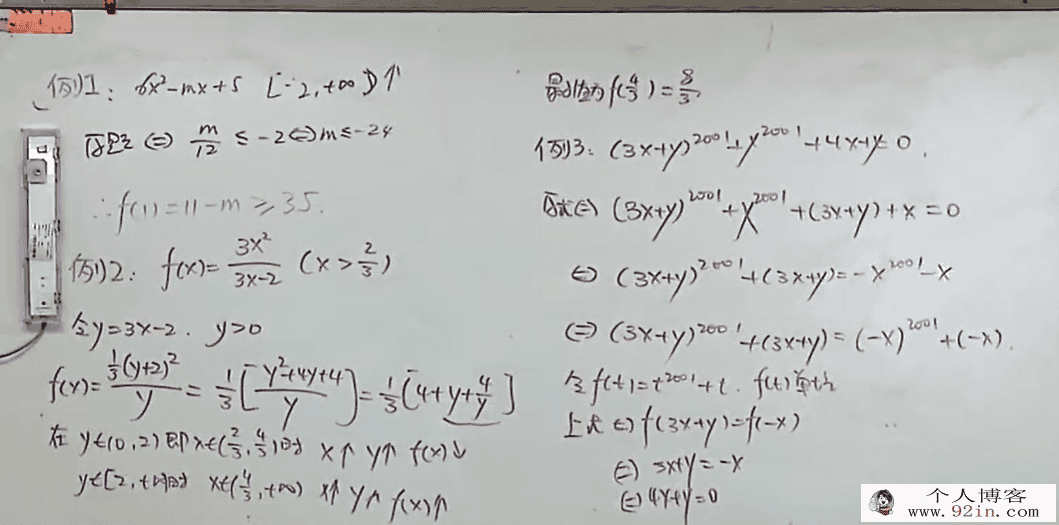 例1: 6x²-mx+5 [-2,+∞)↑
原题 ⇔ m/12 ≤ -2 ⇔ m≤-24
∴f(1)=11-m≥35.
例2: f(x)=3x²/(3x-2) (x>2/3)
令y=3x-2. y>0
f(x)=⅓(y+2)²/y = ⅓[(y²+4y+4)/y] = ⅓[4+y+4/y]
在 y∈(0,2)即x∈(2/3,4/3)时 x↑ y↑ f(x)↓
y∈[2,+∞)时 x∈(4/3,+∞) x↑ y↑ f(x)↑
最小值为f(4/3)=8/3
例3: (3x+y)²⁰⁰¹+y²⁰⁰¹+4x+y=0.
原式⇔ (3x+y)²⁰⁰¹+x²⁰⁰¹+(3x+y)+x=0
⇔ (3x+y)²⁰⁰¹+(3x+y)=-x²⁰⁰¹-x
⇔ (3x+y)²⁰⁰¹+(3x+y)=(-x)²⁰⁰¹+(-x).
令f(t)=t²⁰⁰¹+t. f(t)单增
上式⇔f(3x+y)=f(-x)
⇔ 3x+y=-x
⇔ 4x+y=0
个人博客
www.92in.com